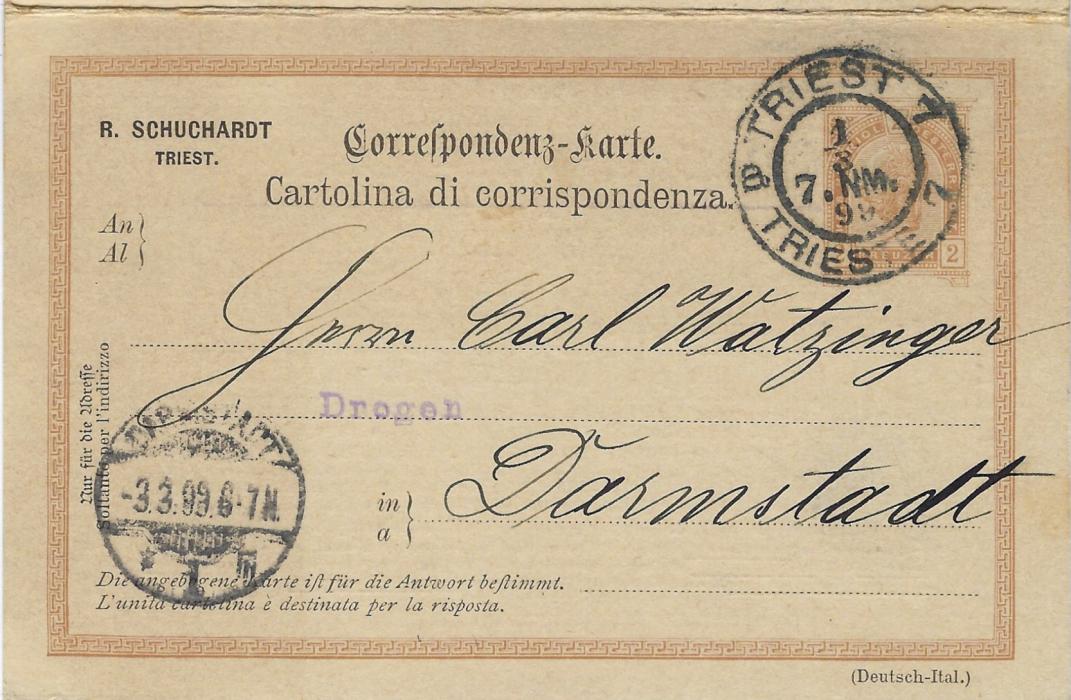 R. SCHUCHARDT
TRIEST.
Correſpondenz-Karte.
Cartolina di corrispondenza.
TRIEST 7
1
3
7. NM.
99
B TRIESTE 7
2
An
Al
Herrn Carl Watzinger
Nur für die Adreſſe
Soltanto per l'indirizzo
Drogen
DARMSTADT
-3.3.99.6-7N.
* 1
in
a
Darmstadt
Die angebogene Karte iſt für die Antwort beſtimmt.
L'unita cartolina è destinata per la risposta.
(Deutsch-Ital.)